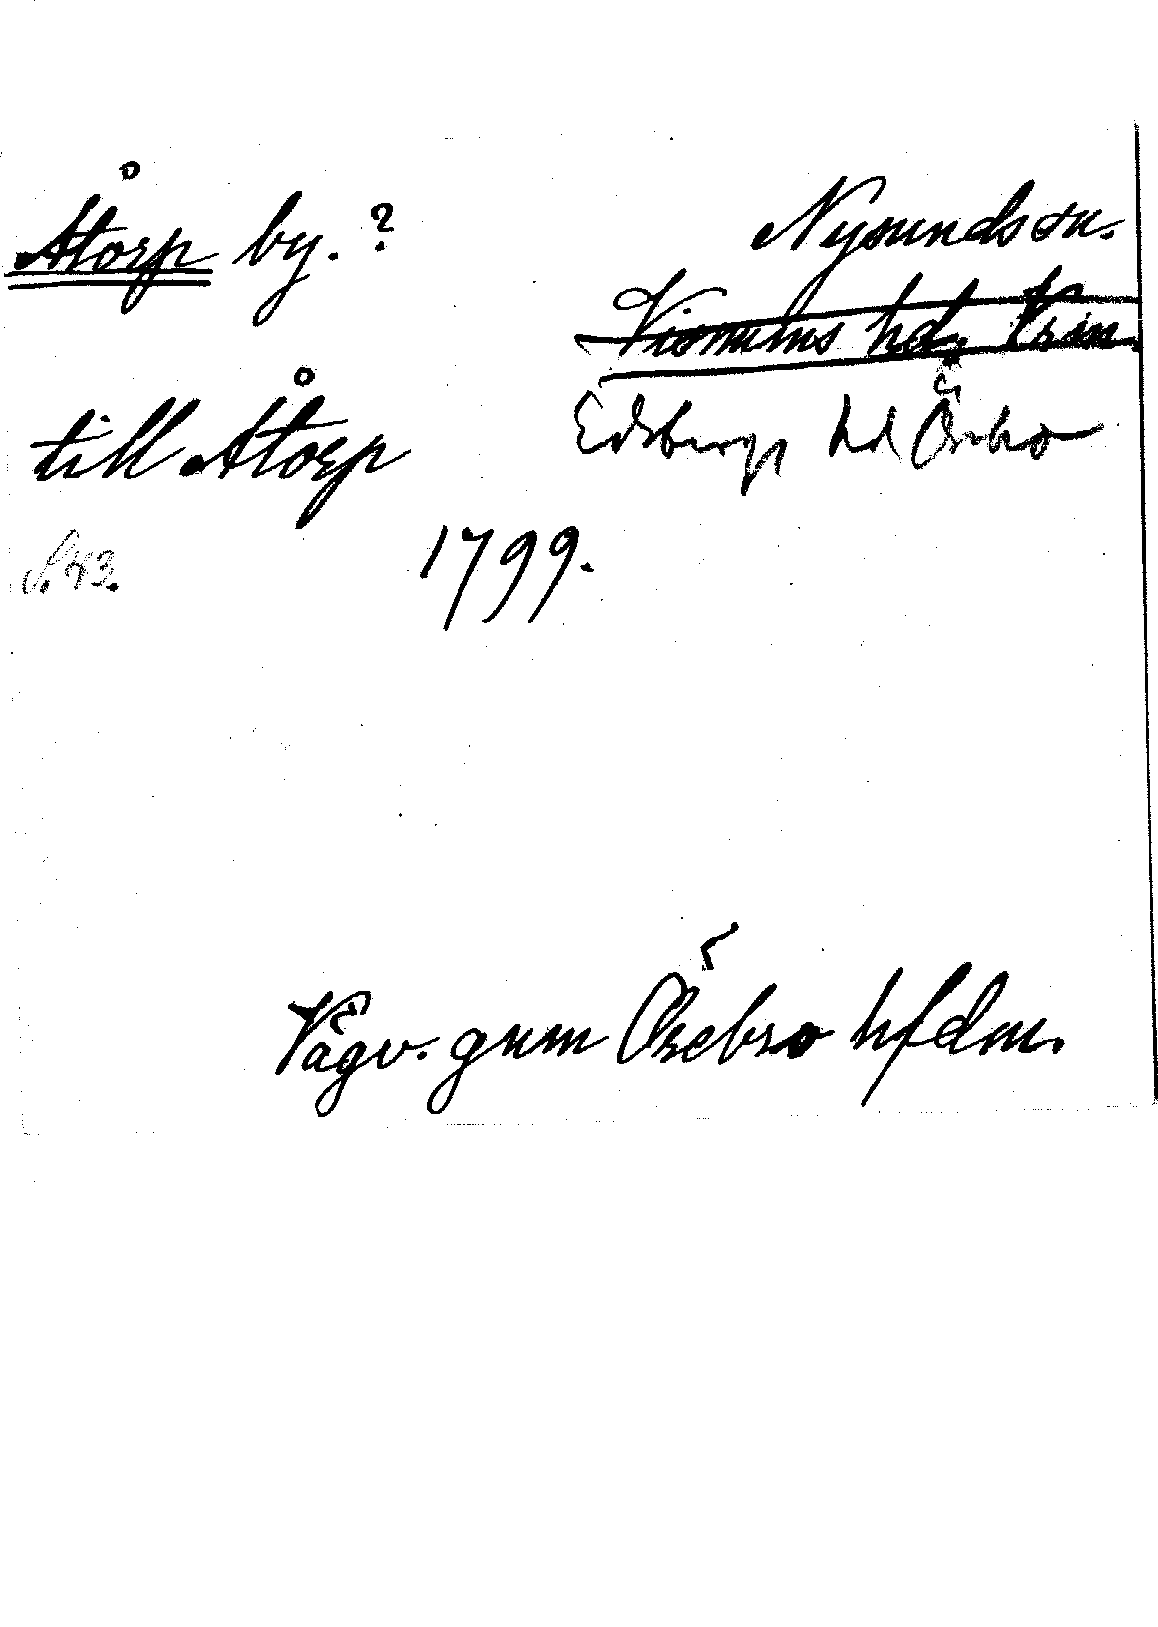 Åtorp by. ?
Nysunds sn.
Visnums hd, Vrml.
Edsbergs hd Örebro
till Åtorp
S. 43.
1799.
Vägv. gnm Örebro hfdm.